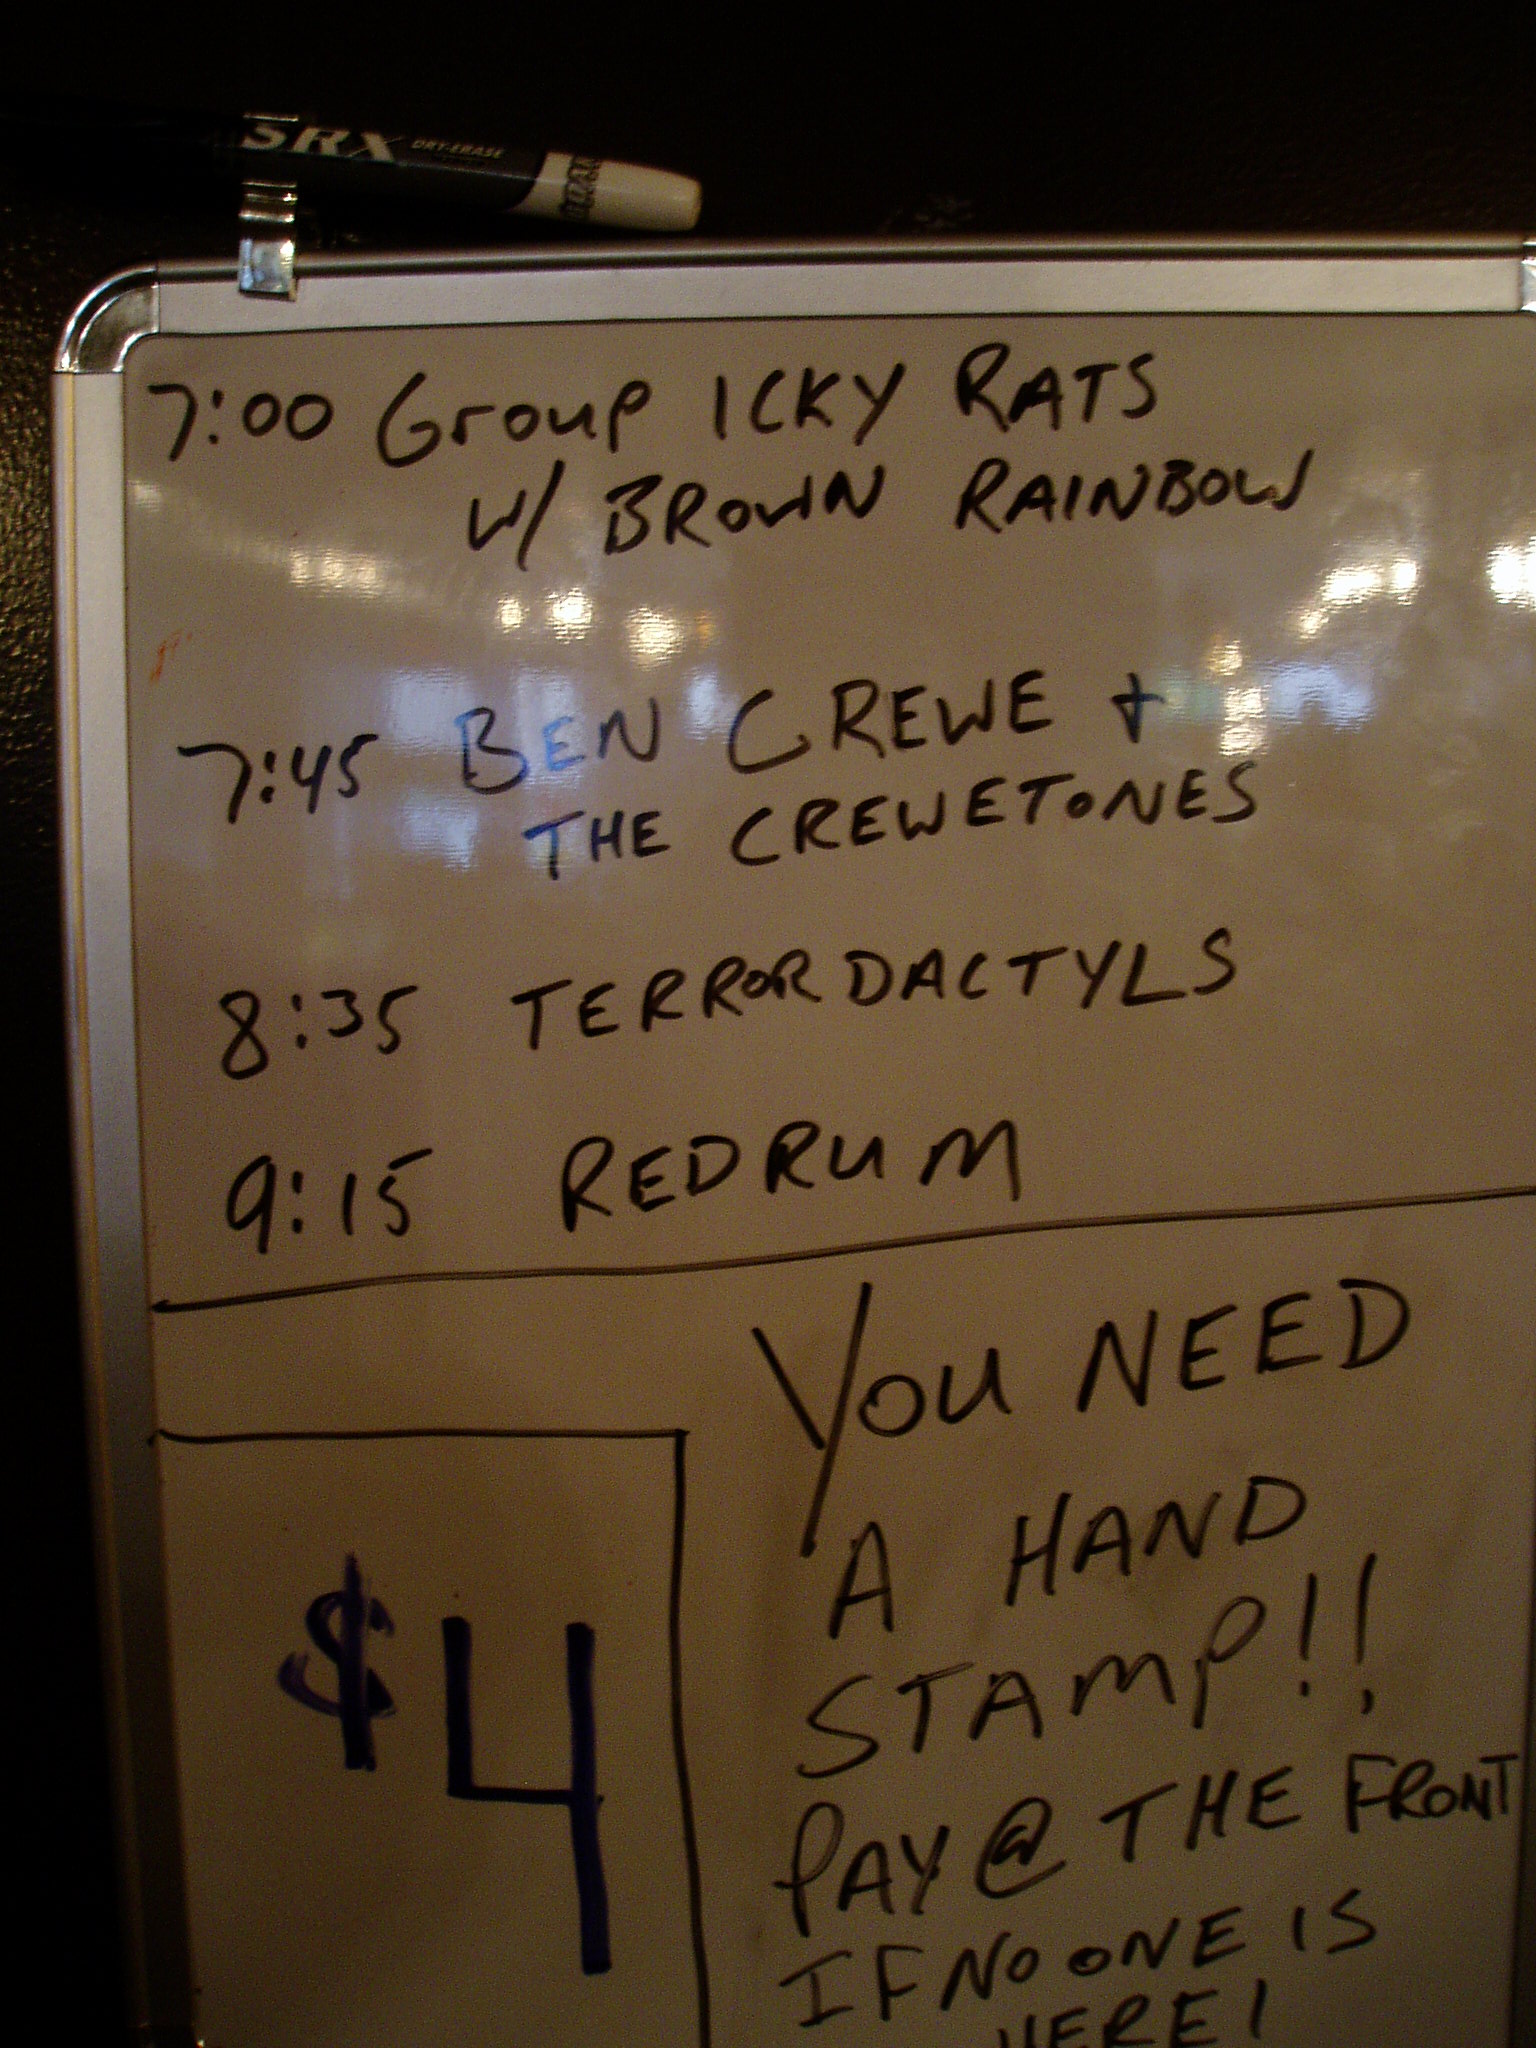 SRX DRY-ERASE
7:00 Group ICKY RATS
W/ BROWN RAINBOW
7:45 BEN CREWE +
THE CREWETONES
8:35 TERRORDACTYLS
9:15 REDRUM
YOU NEED
A HAND
STAMP!!
PAY @ THE FRONT
IF NO ONE IS
HERE!
$4